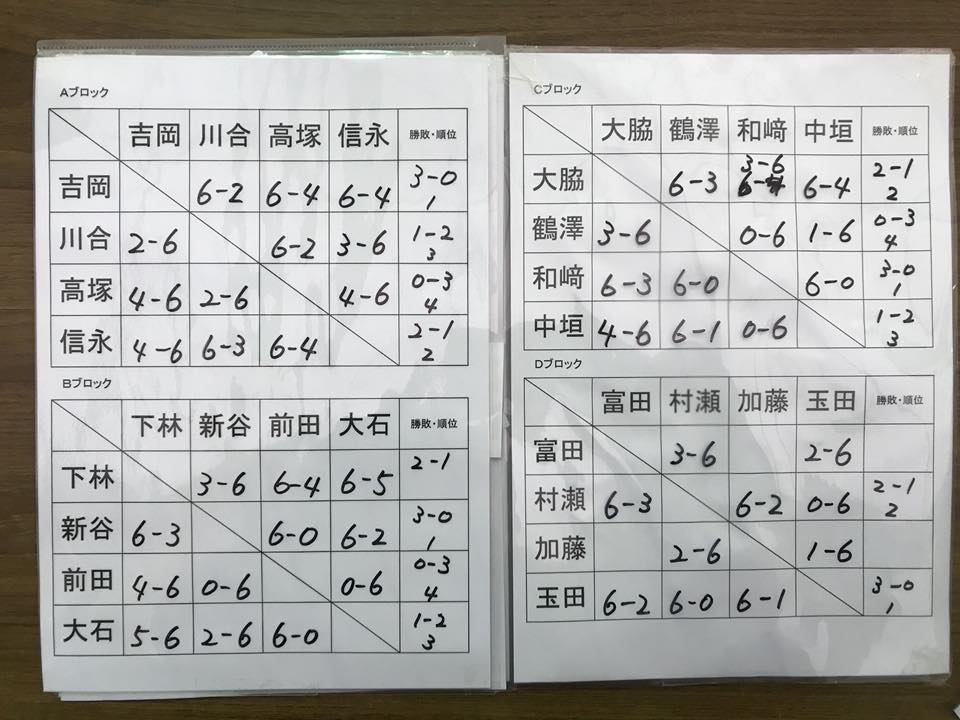 Aブロック
吉岡 川合 高塚 信永 勝敗・順位
吉岡 6-2 6-4 6-4 3-0 1
川合 2-6 6-2 3-6 1-2 3
高塚 4-6 2-6 4-6 0-3 4
信永 4-6 6-3 6-4 2-1 2
Bブロック
下林 新谷 前田 大石 勝敗・順位
下林 3-6 6-4 6-5 2-1
新谷 6-3 6-0 6-2 3-0 1
前田 4-6 0-6 0-6 0-3 4
大石 5-6 2-6 6-0 1-2 3
Cブロック
大脇 鶴澤 和﨑 中垣 勝敗・順位
大脇 6-3 3-6 6-4 2-1 2
鶴澤 3-6 0-6 1-6 0-3 4
和﨑 6-3 6-0 6-0 3-0 1
中垣 4-6 6-1 0-6 1-2 3
Dブロック
富田 村瀬 加藤 玉田 勝敗・順位
富田 3-6 2-6
村瀬 6-3 6-2 0-6 2-1 2
加藤 2-6 1-6
玉田 6-2 6-0 6-1 3-0 1